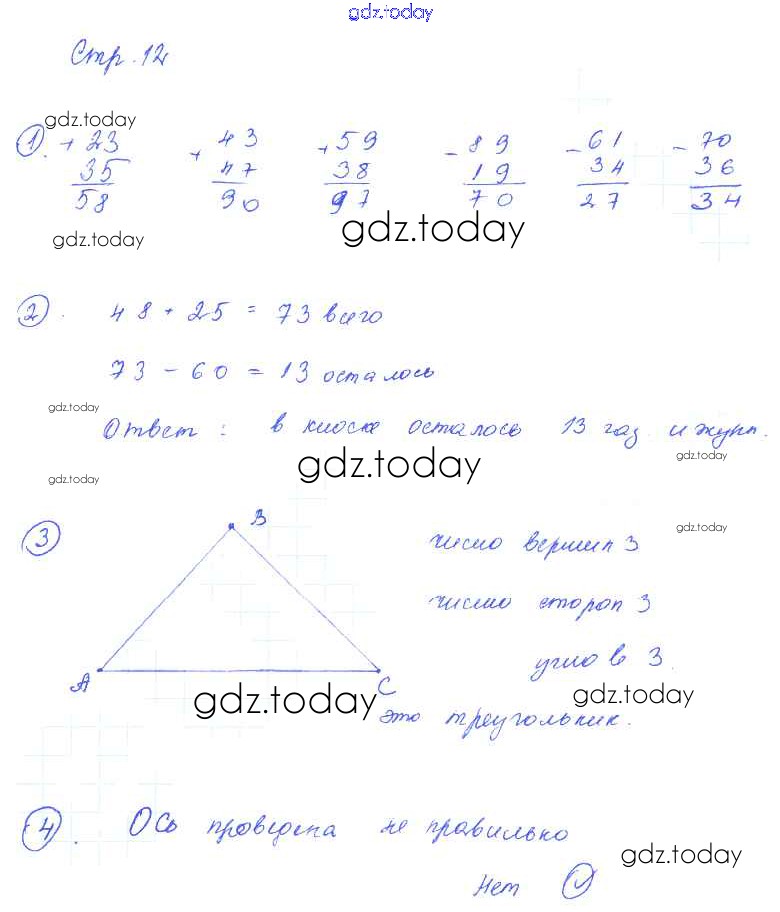 gdz.today
Стр. 12
gdz.today
1. + 23 + 43 + 59 - 89 - 61 - 70
35 47 38 19 34 36
58 90 97 70 27 34
gdz.today gdz.today
2. 48 + 25 = 73 всего
73 - 60 = 13 осталось
gdz.today
Ответ: в киоске осталось 13 газ. и журн.
gdz.today gdz.today gdz.today
3 B gdz.today
число вершин 3
число сторон 3
углов 3.
A C
gdz.today gdz.today
это треугольник.
4. Ось проведена не правильно
gdz.today
Нет ✓